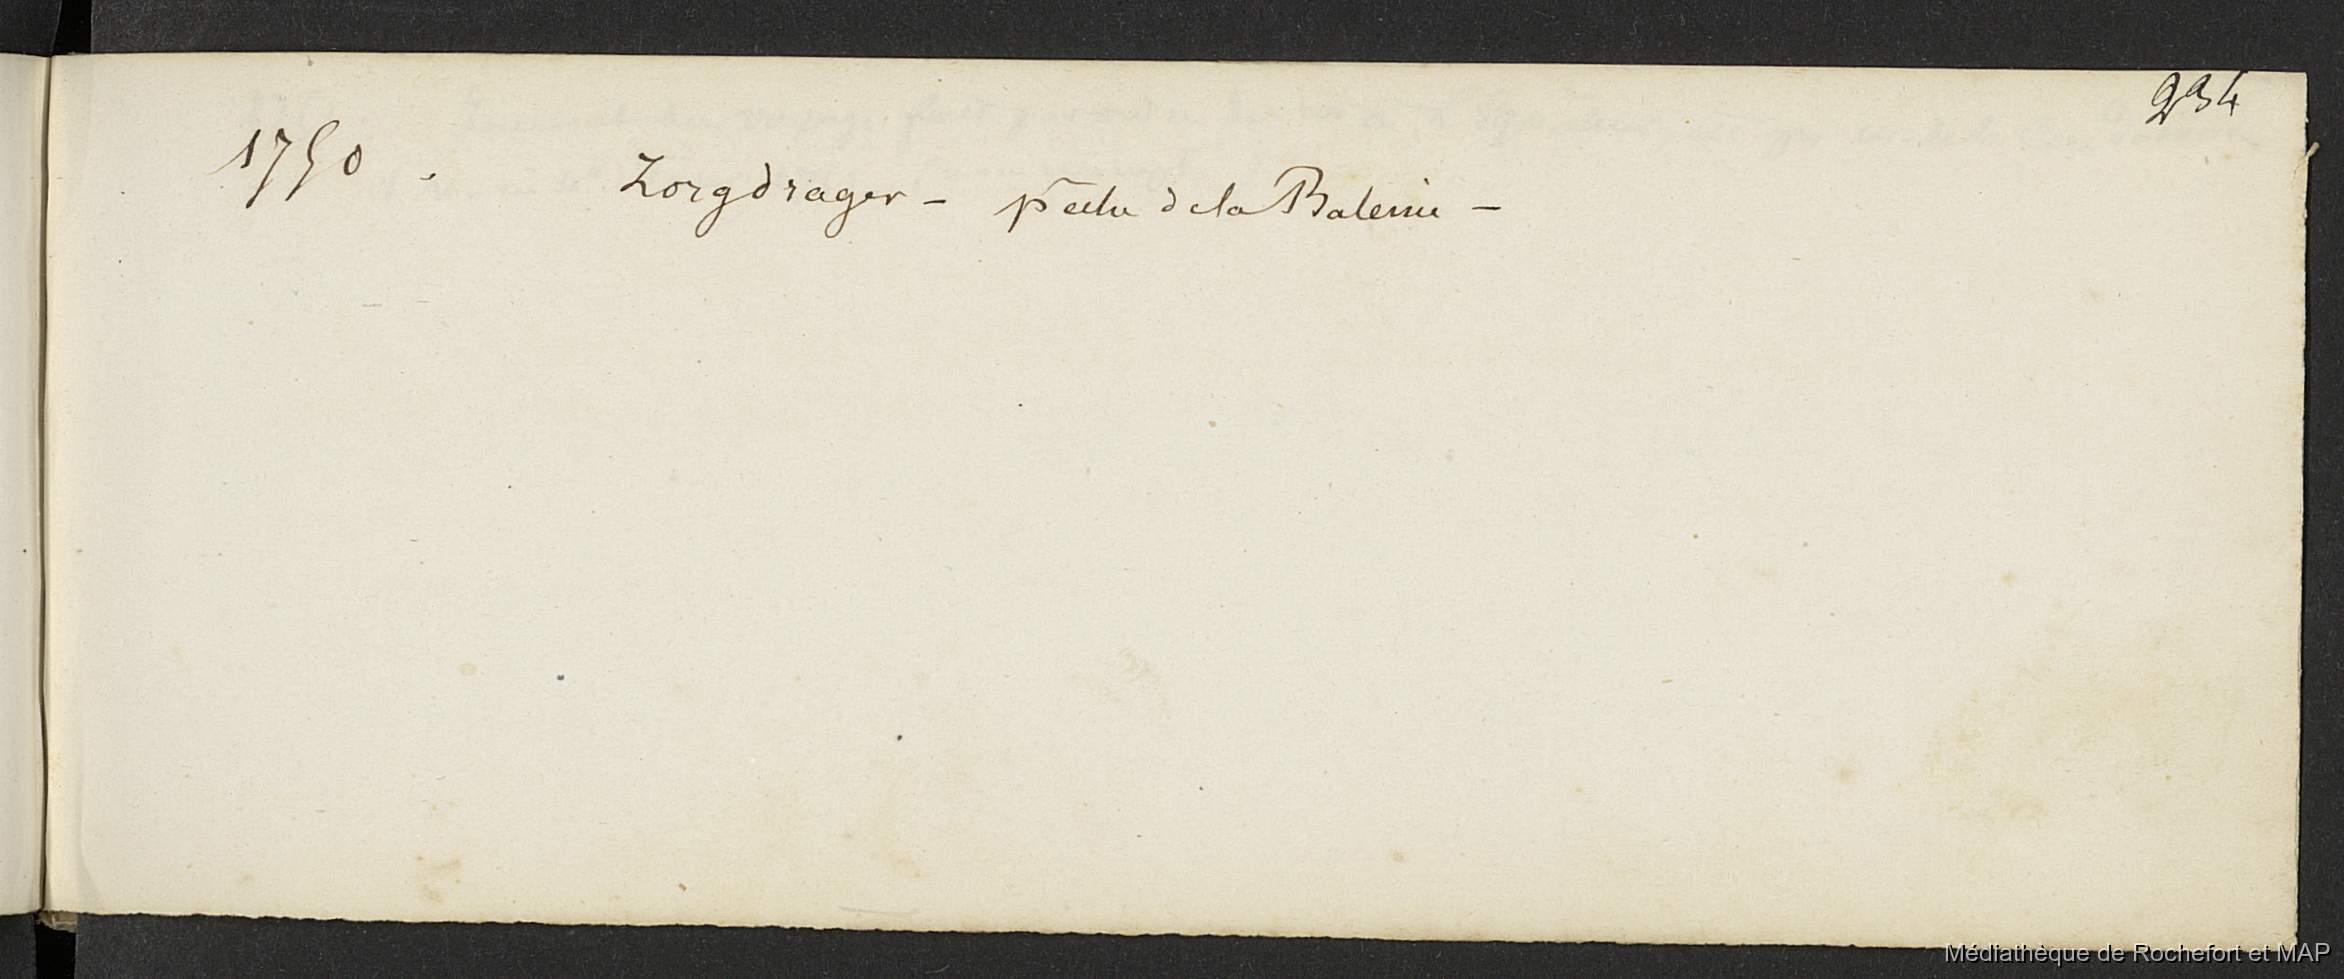 234
1750. Zorgdrager - pêche de la Baleine -
Médiathèque de Rochefort et MAP